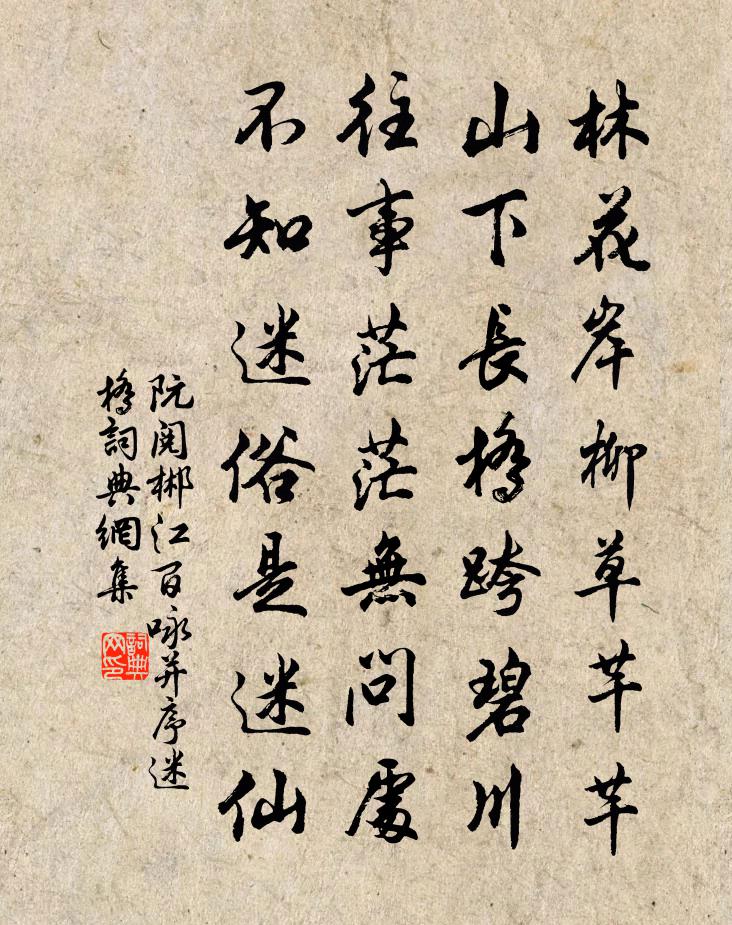 林花岸柳草芊芊
山下長橋跨碧川
往事茫茫無問處
不知迷俗是迷仙
阮閱郴江百咏并序迷
橋詞典網集
詞典
网印